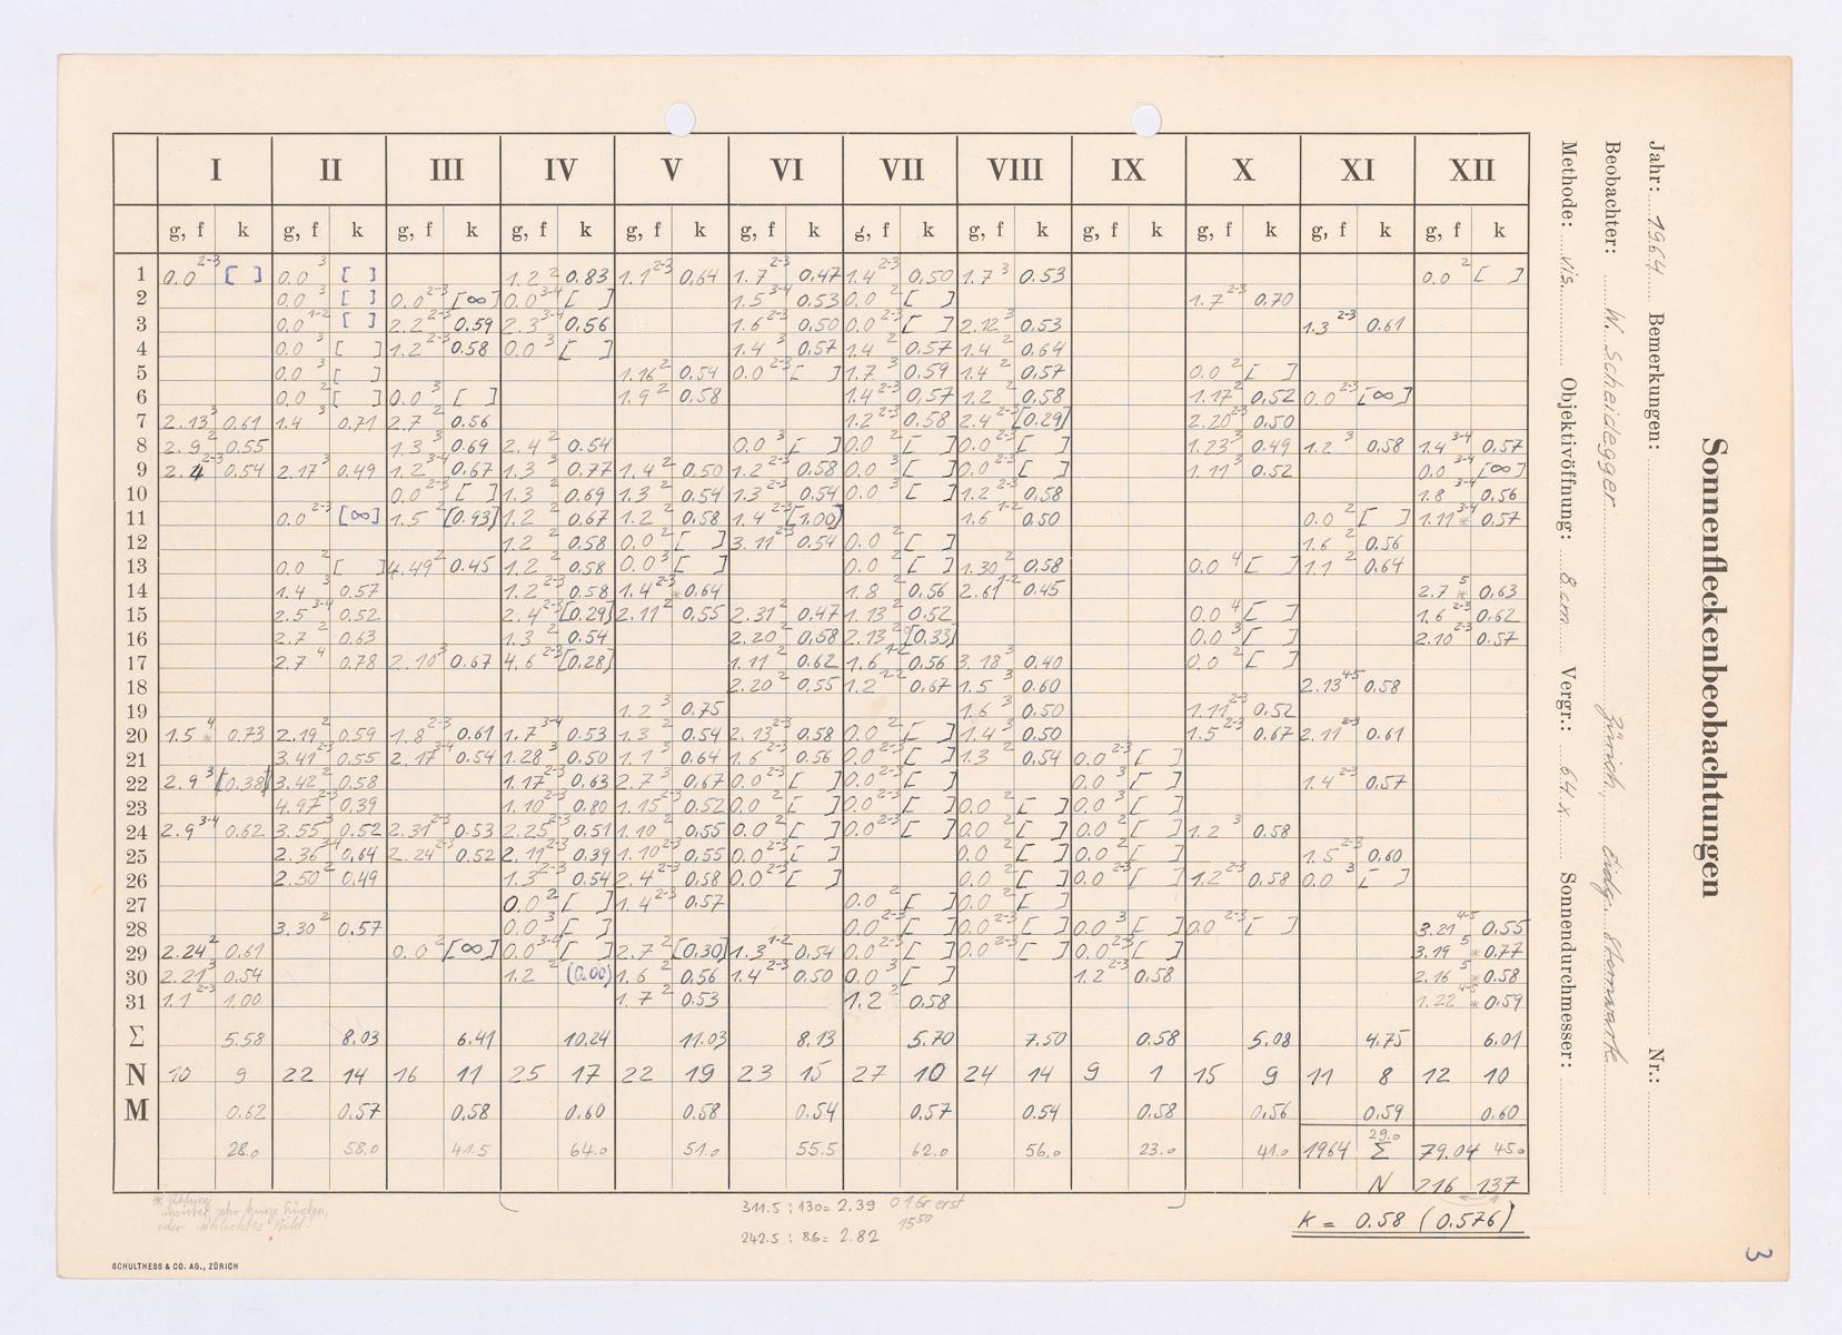 Sonnenfleckenbeobachtungen
Jahr: 1964 Bemerkungen: Nr.:
Beobachter: W. Scheidegger Zürich, Eidg. Sternwarte
Methode: vis. Objektivöffnung: 8 cm Vergr.: 64 x Sonnendurchmesser:
I II III IV V VI VII VIII IX X XI XII
g, f k g, f k g, f k g, f k g, f k g, f k g, f k g, f k g, f k g, f k g, f k g, f k
1 0.0 2-3 [ ] 0.0 3 [ ] 1.2 2 0.83 1.1 2-3 0.64 1.7 2-3 0.47 1.4 2-3 0.50 1.7 3 0.53 0.0 2 [ ]
2 0.0 3 [ ] 0.0 2-3 [∞] 0.0 3-4 [ ] 1.5 3-4 0.53 0.0 2 [ ] 1.7 2-3 0.70
3 0.0 1-2 [ ] 2.2 2-3 0.59 2.3 3-4 0.56 1.6 2-3 0.50 0.0 2-3 [ ] 2.12 3 0.53 1.3 2-3 0.61
4 0.0 3 [ ] 1.2 2-3 0.58 0.0 3 [ ] 1.4 3 0.57 1.4 2 0.57 1.4 2 0.64
5 0.0 3 [ ] 1.16 2 0.54 0.0 2-3 [ ] 1.7 3 0.59 1.4 2 0.57 0.0 2 [ ]
6 0.0 2 [ ] 0.0 3 [ ] 1.9 2 0.58 1.4 2-3 0.57 1.2 2 0.58 1.17 2 0.52 0.0 2-3 [∞]
7 2.13 3 0.61 1.4 3 0.71 2.7 2 0.56 1.2 2-3 0.58 2.4 2-3 [0.29] 2.20 2-3 0.50
8 2.9 2 0.55 1.3 3 0.69 2.4 2 0.54 0.0 3 [ ] 0.0 2 [ ] 0.0 2-3 [ ] 1.23 3 0.49 1.2 3 0.58 1.4 3-4 0.57
9 2.4 2-3 0.54 2.17 3 0.49 1.2 3-4 0.67 1.3 3 0.77 1.4 2 0.50 1.2 2-3 0.58 0.0 3 [ ] 0.0 2-3 [ ] 1.11 3 0.52 0.0 3-4 [∞]
10 0.0 2-3 [ ] 1.3 2 0.69 1.3 2 0.54 1.3 2-3 0.54 0.0 3 [ ] 1.2 2-3 0.58 1.8 3-4 0.56
11 0.0 2-3 [∞] 1.5 2 [0.93] 1.2 2 0.67 1.2 2 0.58 1.4 2-3 [1.00] 1.6 1-2 0.50 0.0 2 [ ] 1.11 3-4 * 0.57
12 1.2 2 0.58 0.0 2 [ ] 3.11 2-3 0.54 0.0 2 [ ] 1.6 2 0.56
13 0.0 2 [ ] 4.49 2 0.45 1.2 2 0.58 0.0 3 [ ] 0.0 2 [ ] 1.30 2 0.58 0.0 4 [ ] 1.1 2 0.64
14 1.4 3 0.57 1.2 2-3 0.58 1.4 2-3 * 0.64 1.8 2 0.56 2.61 1-2 0.45 2.7 5 * 0.63
15 2.5 3-4 0.52 2.4 2-3 [0.29] 2.11 2 0.55 2.31 2 0.47 1.13 2 0.52 0.0 4 [ ] 1.6 2-3 0.62
16 2.7 2 0.63 1.3 2 0.54 2.20 2 0.58 2.13 2 [0.33] 0.0 3 [ ] 2.10 2-3 0.57
17 2.7 4 0.78 2.10 3 0.67 4.6 2-3 [0.28] 1.11 2 0.62 1.6 1-2 0.56 3.18 3 0.40 0.0 2 [ ]
18 2.20 2 0.55 1.2 0.67 1.5 3 0.60 2.13 4-5 0.58
19 1.2 3 0.75 1.6 3 0.50 1.11 2-3 0.52
20 1.5 4 * 0.73 2.19 2 0.59 1.8 2-3 0.61 1.7 3-4 0.53 1.3 2 0.54 2.13 2-3 0.58 0.0 2 [ ] 1.4 3 0.50 1.5 2-3 0.67 2.11 2-3 0.61
21 3.41 2-3 0.55 2.17 3-4 0.54 1.28 3 0.50 1.1 3 0.64 1.6 2 0.56 0.0 2-3 [ ] 1.3 2 0.54 0.0 2-3 [ ]
22 2.9 3 [0.38] 3.42 2 0.58 1.17 2-3 0.63 2.7 3 0.67 0.0 2-3 [ ] 0.0 2-3 [ ] 0.0 3 [ ] 1.4 2-3 0.57
23 4.97 2-3 0.39 1.10 2-3 0.80 1.15 2-3 0.52 0.0 2 [ ] 0.0 2-3 [ ] 0.0 2 [ ] 0.0 3 [ ]
24 2.9 3-4 0.62 3.55 3 0.52 2.31 2-3 0.53 2.25 2-3 0.51 1.10 2 0.55 0.0 2 [ ] 0.0 2-3 [ ] 0.0 2 [ ] 0.0 2 [ ] 1.2 3 0.58
25 2.36 3-4 0.64 2.24 2-3 0.52 2.11 2-3 0.39 1.10 2-3 0.55 0.0 2-3 [ ] 0.0 2 [ ] 0.0 2 [ ] 1.5 2-3 0.60
26 2.50 2 0.49 1.3 2-3 0.54 2.4 2-3 0.58 0.0 2-3 [ ] 0.0 2 [ ] 0.0 2-3 [ ] 1.2 2-3 0.58 0.0 3 [ ]
27 0.0 2 [ ] 1.4 2-3 0.57 0.0 2 [ ] 0.0 2 [ ]
28 3.30 2 0.57 0.0 3 [ ] 0.0 2-3 [ ] 0.0 2-3 [ ] 0.0 3 [ ] 0.0 2-3 [ ] 3.21 4-5 0.55
29 2.24 2 0.61 0.0 2 [∞] 0.0 3-4 [ ] 2.7 2 [0.30] 1.3 1-2 0.54 0.0 2-3 [ ] 0.0 2-3 [ ] 0.0 2-3 [ ] 3.19 5 * 0.77
30 2.21 3 0.54 1.2 2 (0.00) 1.6 2 0.56 1.4 2-3 0.50 0.0 3 [ ] 1.2 2-3 0.58 2.16 5 * 0.58
31 1.1 2-3 1.00 1.7 2 0.53 1.2 2 0.58 1.22 4-5 * 0.59
Σ 5.58 8.03 6.41 10.24 11.03 8.13 5.70 7.50 0.58 5.08 4.75 6.01
N 10 9 22 14 16 11 25 17 22 19 23 15 27 10 24 14 9 1 15 9 11 8 12 10
M 0.62 0.57 0.58 0.60 0.58 0.54 0.57 0.54 0.58 0.56 0.59 0.60
28.0 58.0 41.5 64.0 51.0 55.5 62.0 56.0 23.0 41.0 29.0 45.0
1964 Σ 79.04
N 216 137
K = 0.58 (0.576)
311.5 : 130 = 2.39
242.5 : 86 = 2.82
1550
oder schlechtes Bild.
SCHULTHESS & CO. AG., ZÜRICH
3